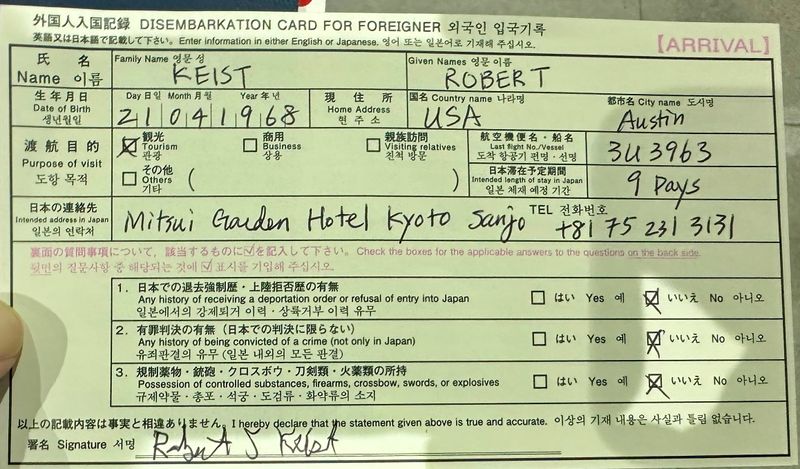 外国人入国記録 DISEMBARKATION CARD FOR FOREIGNER 외국인 입국기록
英語又は日本語で記載して下さい。Enter information in either English or Japanese. 영어 또는 일본어로 기재해 주십시오.
【ARRIVAL】
氏 名 Family Name 영문 성 Given Names 영문 이름
Name 이름 KEIST ROBERT
生年月日 Day 日 일 Month 月 월 Year 年 년 現住所 国名 Country name 나라명 都市名 City name 도시명
Date of Birth 21 04 1968 Home Address USA Austin
생년월일 현 주 소
渡航目的 観光 商用 親族訪問 航空機便名・船名
Purpose of visit Tourism Business Visiting relatives Last flight No./Vessel 3U3963
도항 목적 관광 상용 친척 방문 도착 항공기 편명・선명
その他 日本滞在予定期間
Others ( ) Intended length of stay in Japan 9 Days
기타 일본 체재 예정 기간
日本の連絡先 TEL 전화번호
Intended address in Japan Mitsui Garden Hotel Kyoto Sanjo +81 75 231 3131
일본의 연락처
裏面の質問事項について、該当するものに☑を記入して下さい。Check the boxes for the applicable answers to the questions on the back side.
뒷면의 질문사항 중 해당되는 것에 ☑ 표시를 기입해 주십시오.
1. 日本での退去強制歴・上陸拒否歴の有無
Any history of receiving a deportation order or refusal of entry into Japan □ はい Yes 예 ☒ いいえ No 아니오
일본에서의 강제퇴거 이력・상륙거부 이력 유무
2. 有罪判決の有無（日本での判決に限らない）
Any history of being convicted of a crime (not only in Japan) □ はい Yes 예 ☒ いいえ No 아니오
유죄판결의 유무 (일본 내외의 모든 판결)
3. 規制薬物・銃砲・クロスボウ・刀剣類・火薬類の所持
Possession of controlled substances, firearms, crossbow, swords, or explosives □ はい Yes 예 ☒ いいえ No 아니오
규제약물・총포・석궁・도검류・화약류의 소지
以上の記載内容は事実と相違ありません。I hereby declare that the statement given above is true and accurate. 이상의 기재 내용은 사실과 틀림 없습니다.
署名 Signature 서명 Robert J Keist